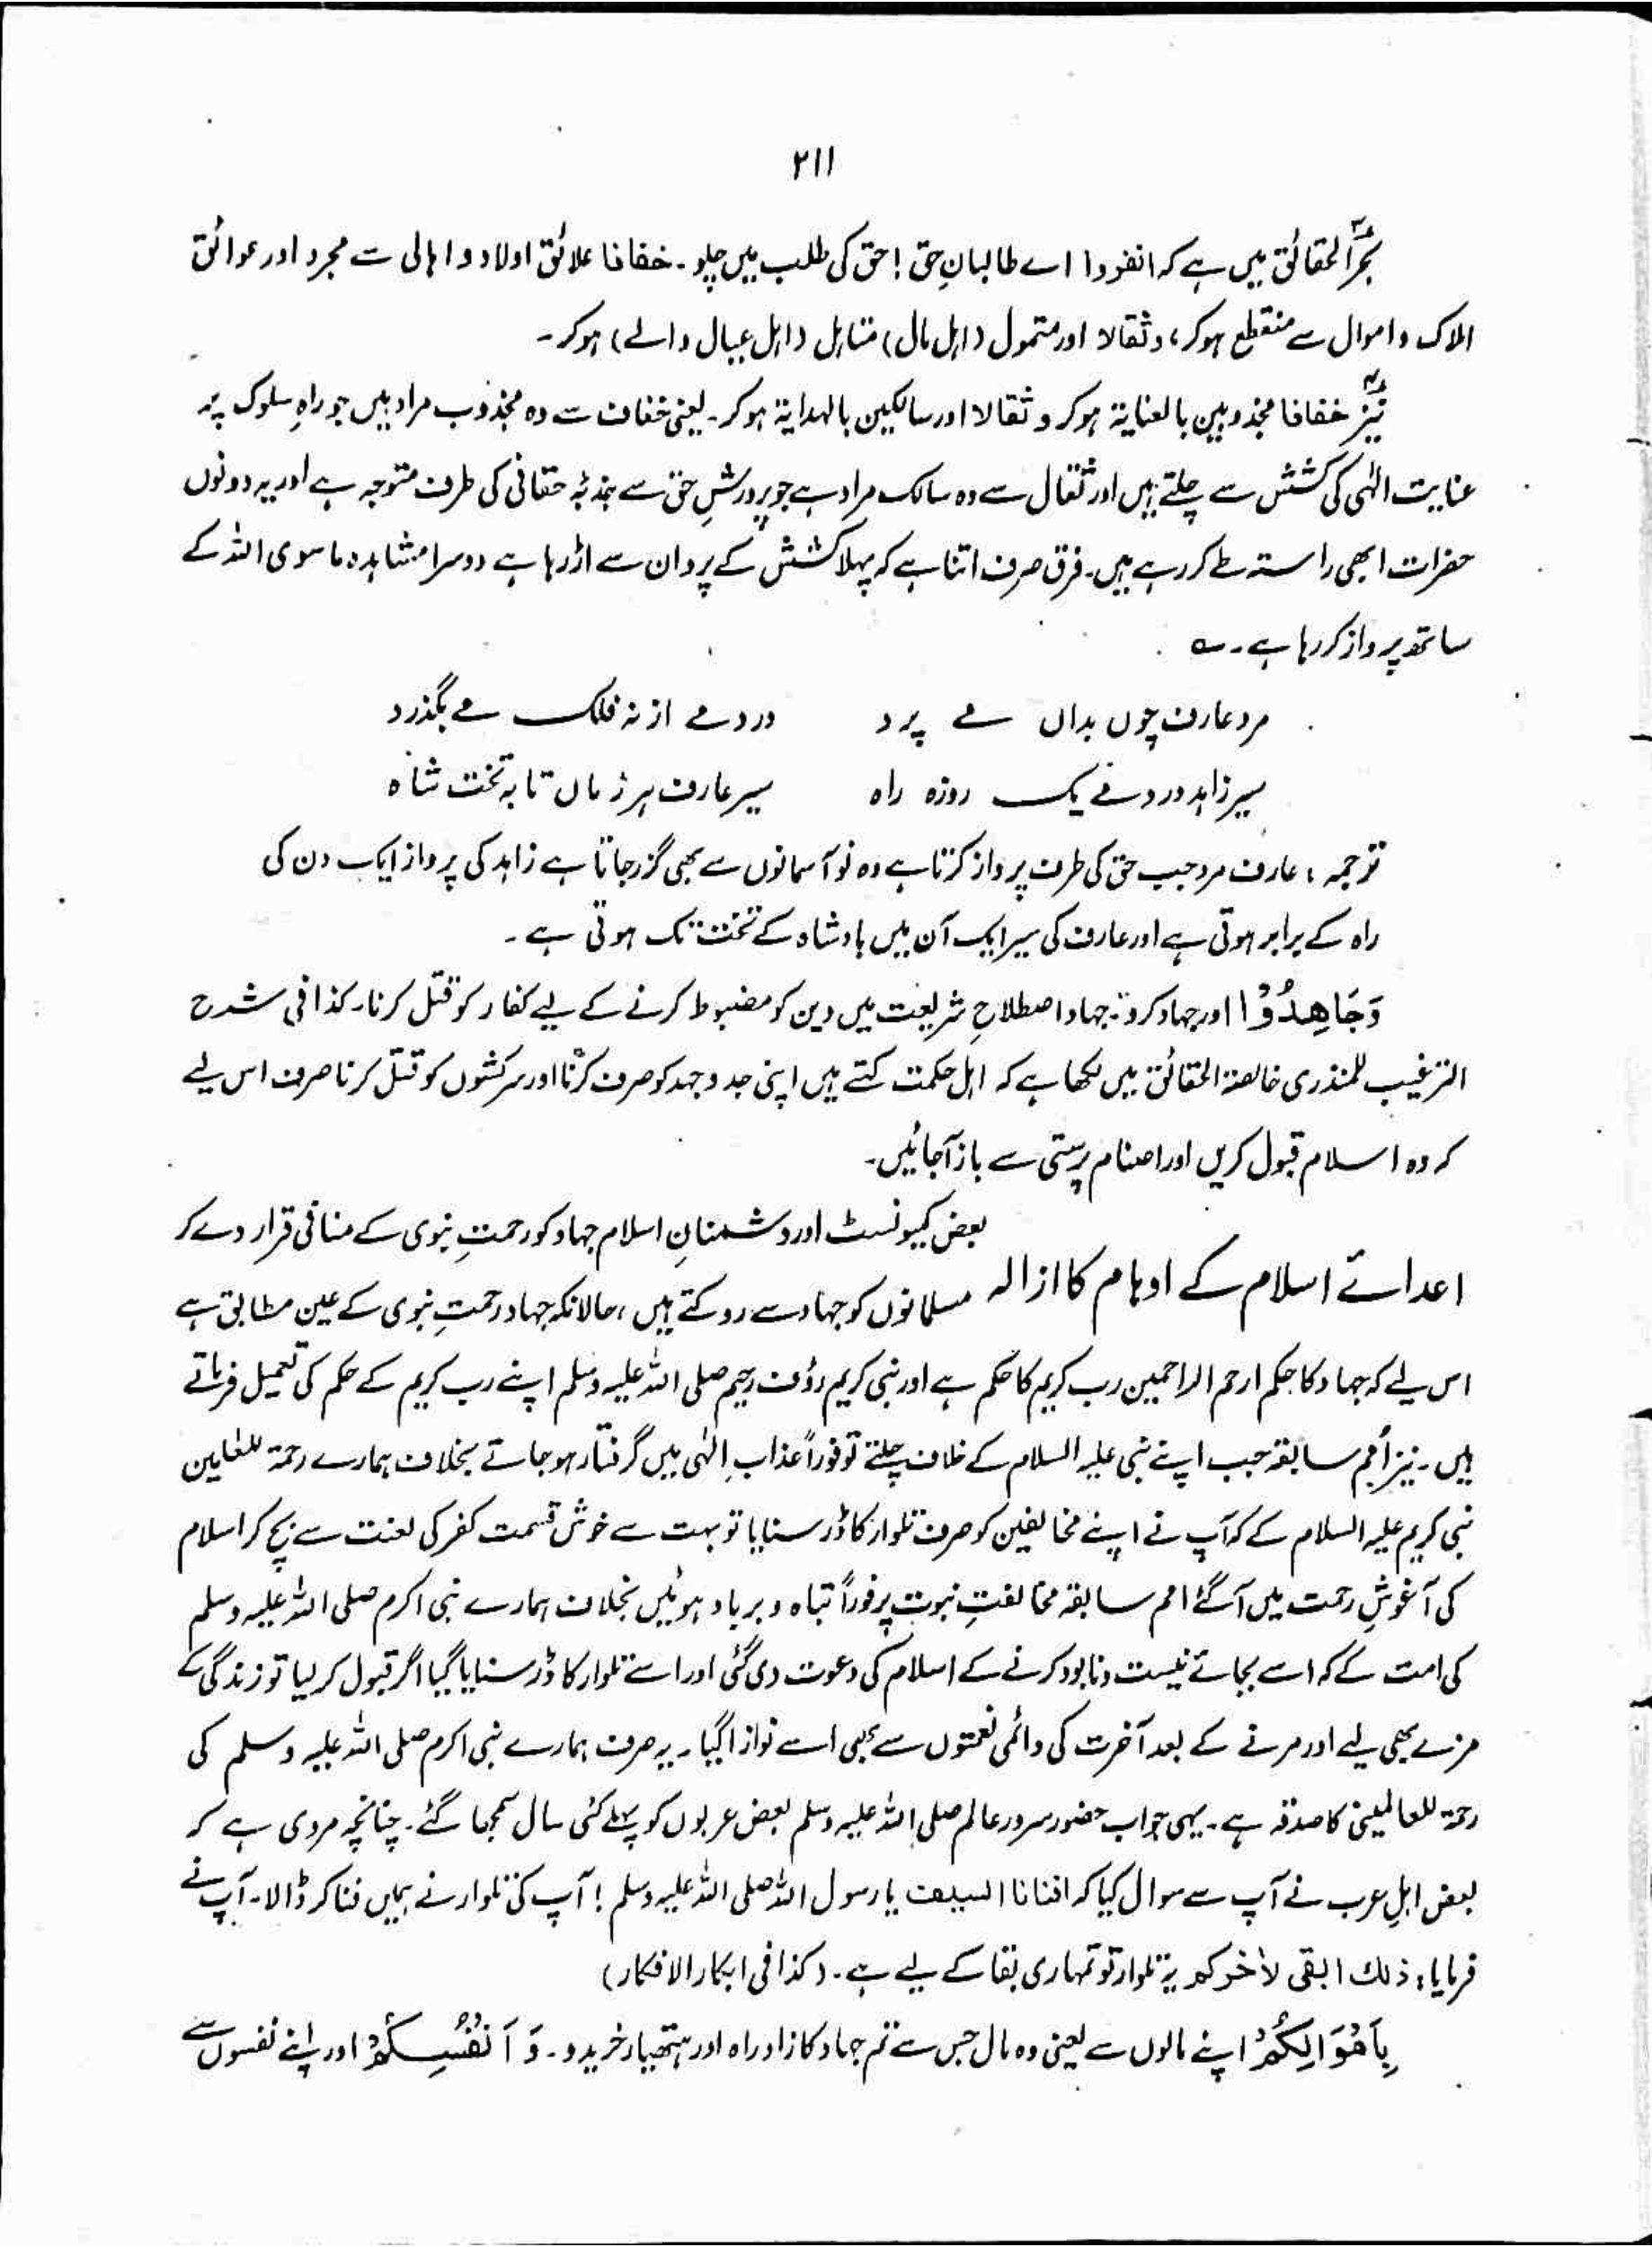 ۲۱۱
بحر الحقائق میں ہے کہ انفروا اے طالبانِ حق! حق کی طلب میں چلو۔ خفافا علائق اولاد و اہالی سے مجرد اور عوائق
املاک و اموال سے منقطع ہو کر، و ثقالا اور متمول (اہل مال) متاہل (اہل عیال والے) ہو کر۔
نیز خفافا مجذوبین بالعنایۃ ہو کر و ثقالا اور سالکین بالہدایۃ ہو کر۔ یعنی خفاف سے وہ مجذوب مراد ہیں جو راہِ سلوک پر
عنایت الٰہی کی کشش سے چلتے ہیں اور ثقال سے وہ سالک مراد ہے جو پرورشِ حق سے جذبۂ حقانی کی طرف متوجہ ہے اور یہ دونوں
حضرات ابھی راستہ طے کر رہے ہیں۔ فرق صرف اتنا ہے کہ پہلا کشش کے پروان سے اڑ رہا ہے دوسرا مشاہدہ ماسوی اللہ کے
ساتھ پرواز کر رہا ہے۔ ؎
مرد عارف چوں بداں مے پرد دردمے از نہ فلک مے بگذرد
سیر زاہد دردمے یک روزہ راہ سیر عارف ہر زماں تا بہ تخت شاہ
ترجمہ: عارف مرد جب حق کی طرف پرواز کرتا ہے وہ نو آسمانوں سے بھی گزر جاتا ہے زاہد کی پرواز ایک دن کی
راہ کے برابر ہوتی ہے اور عارف کی سیر ایک آن میں بادشاہ کے تخت تک ہوتی ہے۔
وَجَاهِدُوْا اور جہاد کرو۔ جہاد اصطلاحِ شریعت میں دین کو مضبوط کرنے کے لیے کفار کو قتل کرنا۔ کذا فی شرح
الترغیب للمنذری خالصۃ الحقائق میں لکھا ہے کہ اہل حکمت کہتے ہیں اپنی جد و جہد کو صرف کرنا اور سرکشوں کو قتل کرنا صرف اس لیے
کہ وہ اسلام قبول کریں اور اصنام پرستی سے باز آجائیں۔
بعض کمیونسٹ اور دشمنانِ اسلام جہاد کو رحمتِ نبوی کے منافی قرار دے کر
اعدائے اسلام کے اوہام کا ازالہ مسلمانوں کو جہاد سے روکتے ہیں، حالانکہ جہاد رحمتِ نبوی کے عین مطابق ہے
اس لیے کہ جہاد کا حکم ارحم الراحمین رب کریم کا حکم ہے اور نبی کریم رؤف رحیم صلی اللہ علیہ وسلم اپنے رب کریم کے حکم کی تعمیل فرماتے
ہیں۔ نیز اُمم سابقہ جب اپنے نبی علیہ السلام کے خلاف چلتے تو فوراً عذابِ الٰہی میں گرفتار ہو جاتے بخلاف ہمارے رحمۃ للعٰلمین
نبی کریم علیہ السلام کے کہ آپ نے اپنے مخالفین کو صرف تلوار کا ڈر سنایا تو بہت سے خوش قسمت کفر کی لعنت سے بچ کر اسلام
کی آغوشِ رحمت میں آ گئے امم سابقہ مخالفتِ نبوت پر فوراً تباہ و برباد ہوئیں بخلاف ہمارے نبی اکرم صلی اللہ علیہ وسلم
کی امت کے کہ اسے بجائے نیست و نابود کرنے کے اسلام کی دعوت دی گئی اور اسے تلوار کا ڈر سنایا گیا اگر قبول کر لیا تو زندگی کے
مزے بھی لیے اور مرنے کے بعد آخرت کی دائمی نعمتوں سے بھی اسے نوازا گیا۔ یہ صرف ہمارے نبی اکرم صلی اللہ علیہ وسلم کی
رحمۃ للعالمینی کا صدقہ ہے۔ یہی جواب حضور سرور عالم صلی اللہ علیہ وسلم بعض عربوں کو پہلے کئی سال سمجھا گئے۔ چنانچہ مروی ہے کہ
بعض اہلِ عرب نے آپ سے سوال کیا کہ افنانا السیف یا رسول اللہ صلی اللہ علیہ وسلم! آپ کی تلوار نے ہمیں فنا کر ڈالا۔ آپ نے
فرمایا: ذلك ابقی لاٰخرکم یہ تلوار تو تمہاری بقا کے لیے ہے۔ (کذا فی ابکار الافکار)
بِاَمْوَالِكُمْ اپنے مالوں سے یعنی وہ مال جس سے تم جہاد کا زاد راہ اور ہتھیار خریدو۔ وَ اَنْفُسِكُمْ اور اپنے نفسوں سے